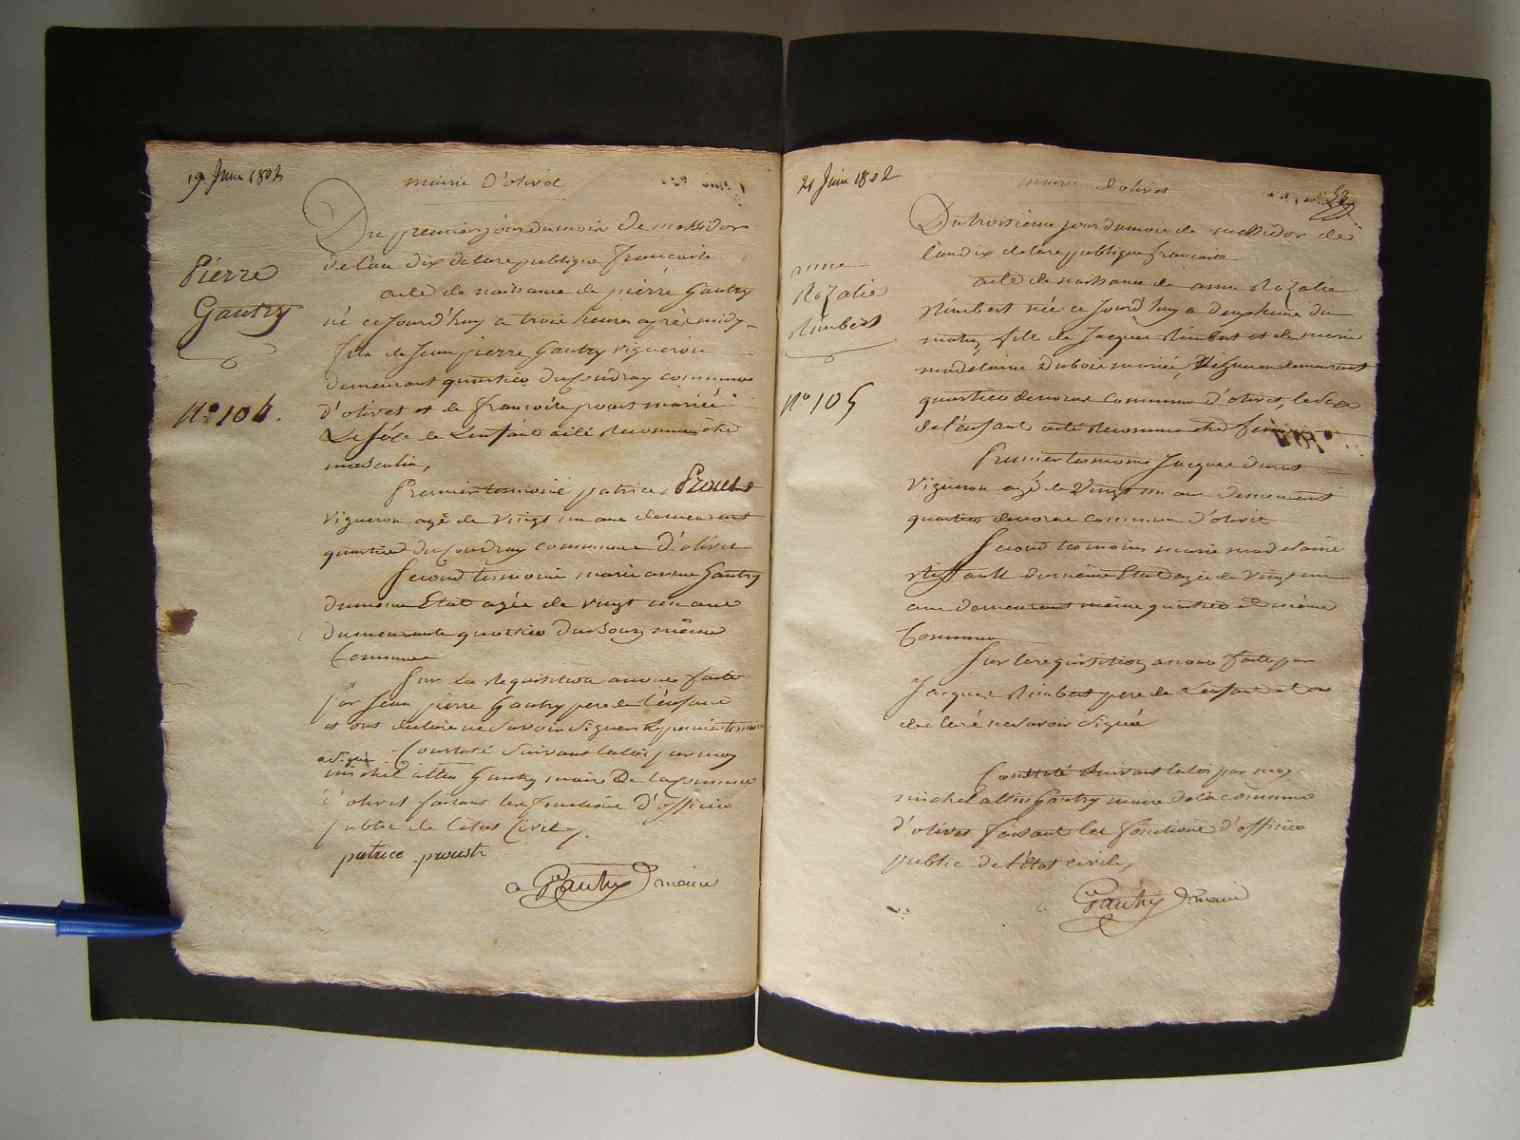 19 Juin 1802
mairie d'olivet
Du premier jour du mois de messidor
de l'an dix de la republique francaise
Pierre
Gautry
N° 104.
acte de naissance de pierre Gautry
né ce jourd'huy a trois heures après midy
fils de Jean pierre Gautry vigneron
demeurant quartier du Coudray commune
d'olivet et de francoise proust mariés
Le sexe de L'enfant a été Reconnu être
masculin,
Premier temoins patrice Proust
vigneron agé de vingt un ans demeurant
quartier du Coudray commune d'olivet
Second temoins marie anne Gautry
du meme Etat agée de vingt un ans
demeurante quartier du même
Commune
Sur La Requisition a nous faite
par Jean pierre Gautry pere de l'enfant
et ont declaré ne savoir signer Le premier temoin
a signé. Constaté suivant la loi par moy
michel Gautry maire De la Commune
d'olivet faisant les fonctions d'officier
public de l'etat Civil,
patrice proust
Gautry maire
21 Juin 1802
mairie d'olivet
Du troisieme jour du mois de messidor de
l'an dix de la republique francaise
anne
Rozalie
Rimbert
N° 105
acte de naissance de anne Rozalie
Rimbert née ce jourd'huy a deux heures du
matin, fille de Jacques Rimbert et de marie
madelaine Dubois mariés, Vigneron demeurant
quartier commune d'olivet, le sexe
de l'enfant a été Reconnu etre
Premier temoins Jacques
Vigneron agé de Vingt un ans demeurant
quartier commune d'olivet
Second temoins marie madelaine
du même Etat agée de vingt un
ans demeurant même quartier et même
Commune
Sur la requisition a nous faite par
Jacques Rimbert pere de L'enfant et a
declaré ne savoir signer
Constaté suivant la loi par moy
michel Gautry maire de la commune
d'olivet faisant les fonctions d'officier
public de l'état civil,
Gautry maire